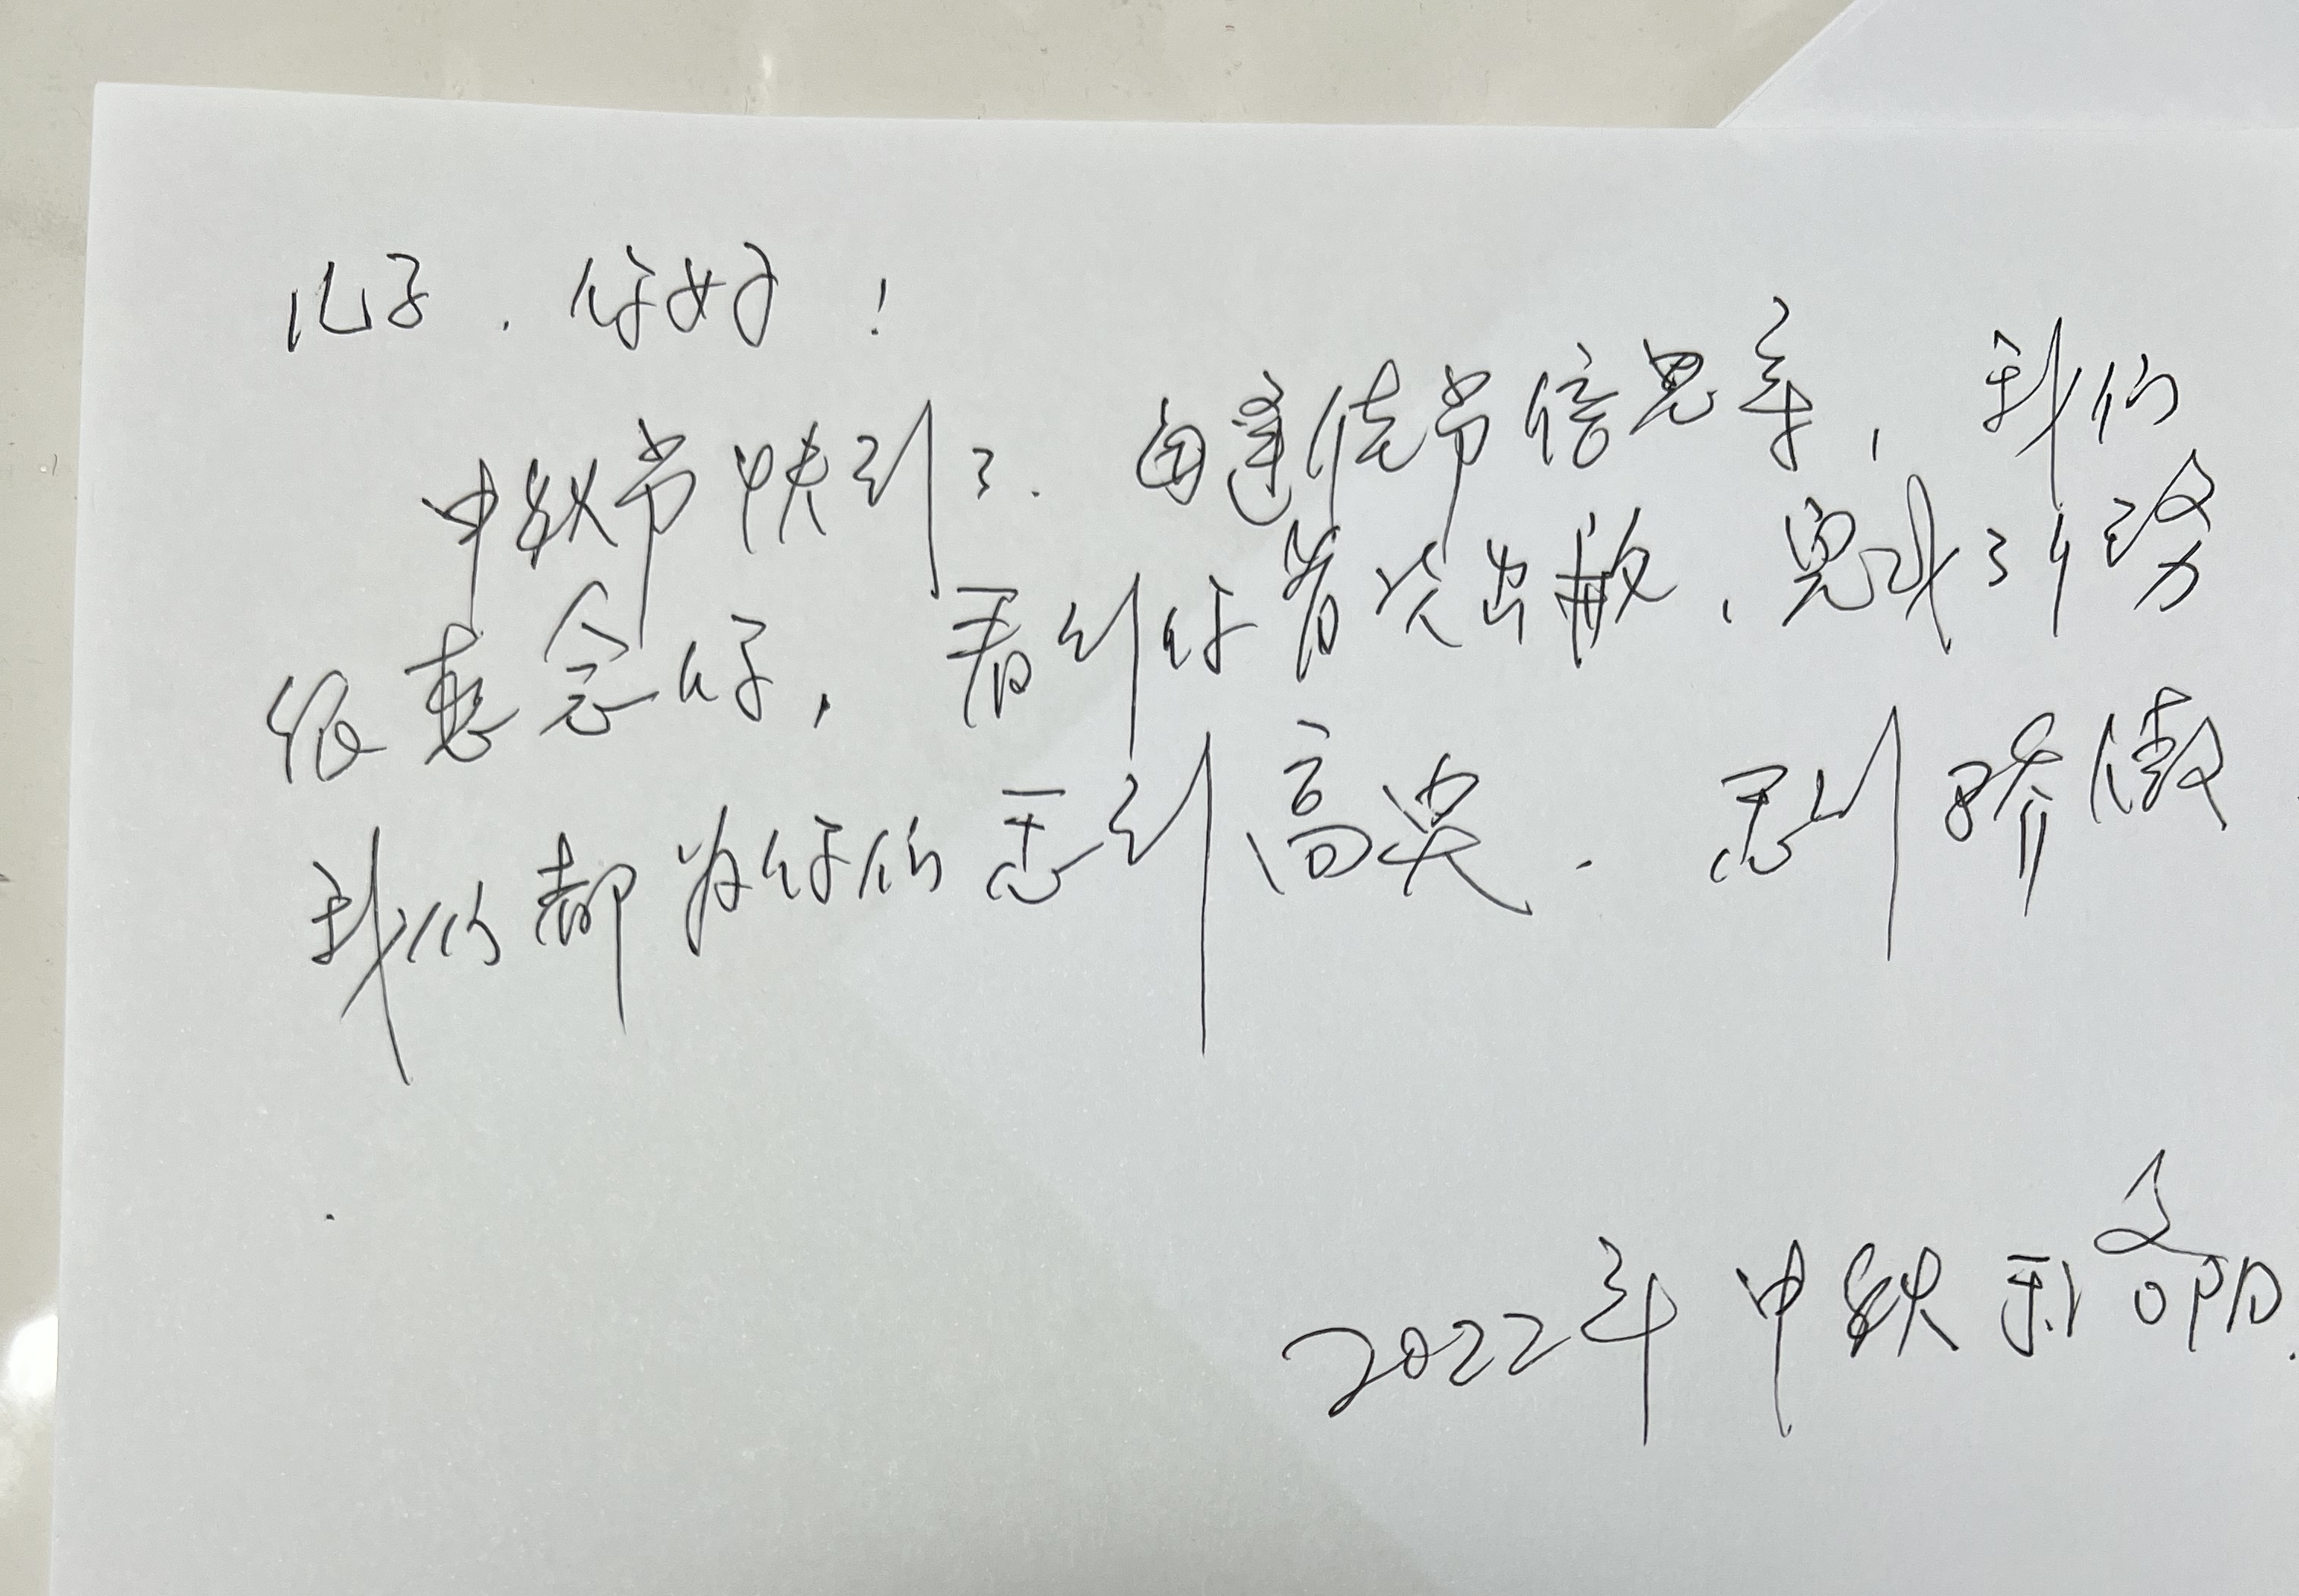 儿子，你好！
中秋节快到了，每逢佳节倍思亲，我们
很惠念你，看到你首次出散，完成了任务
我们都为你们感到高兴，感到骄傲
2022年中秋